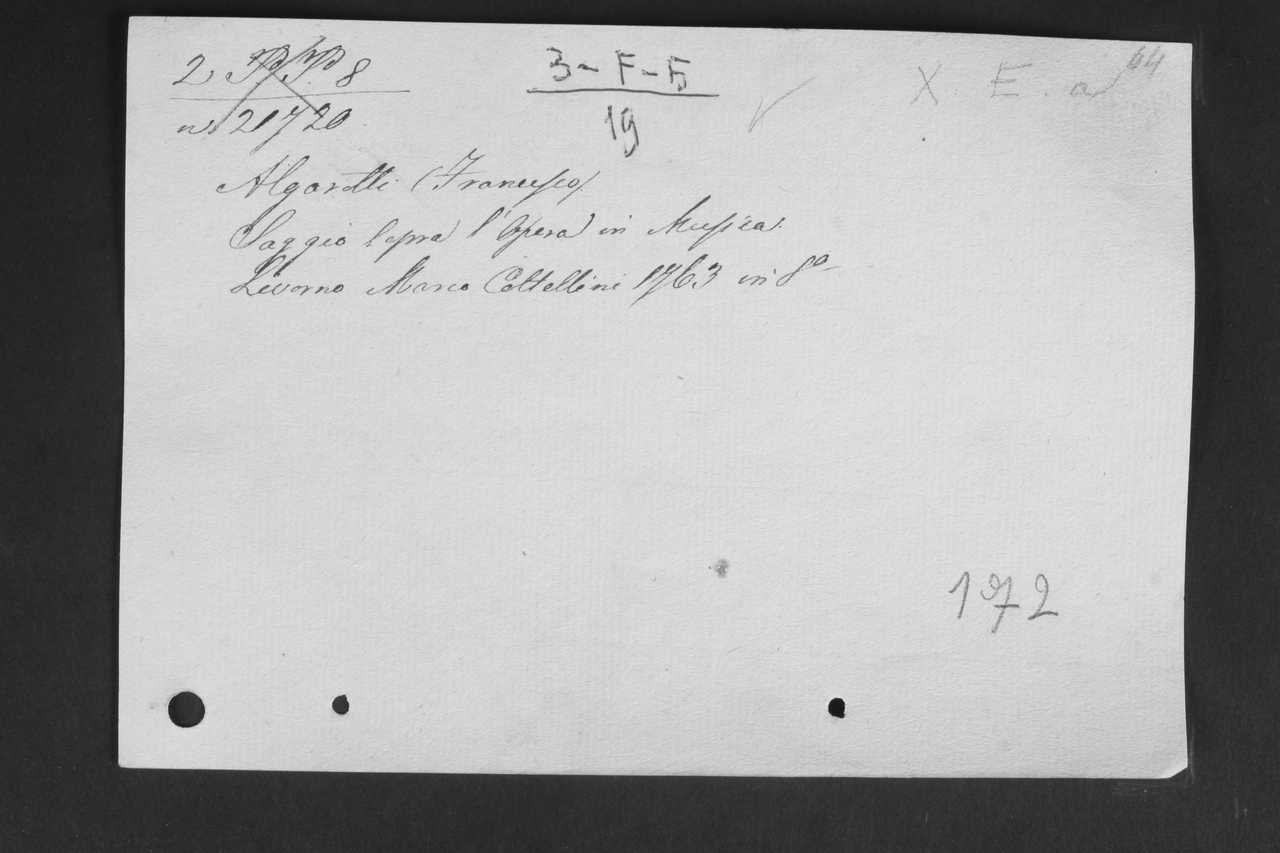 3-F-5
19
X. E. a
64
n. 21720
Algarotti (Francesco)
Saggio sopra l'Opera in Musica.
Livorno Marco Coltellini 1763 in 8º
172